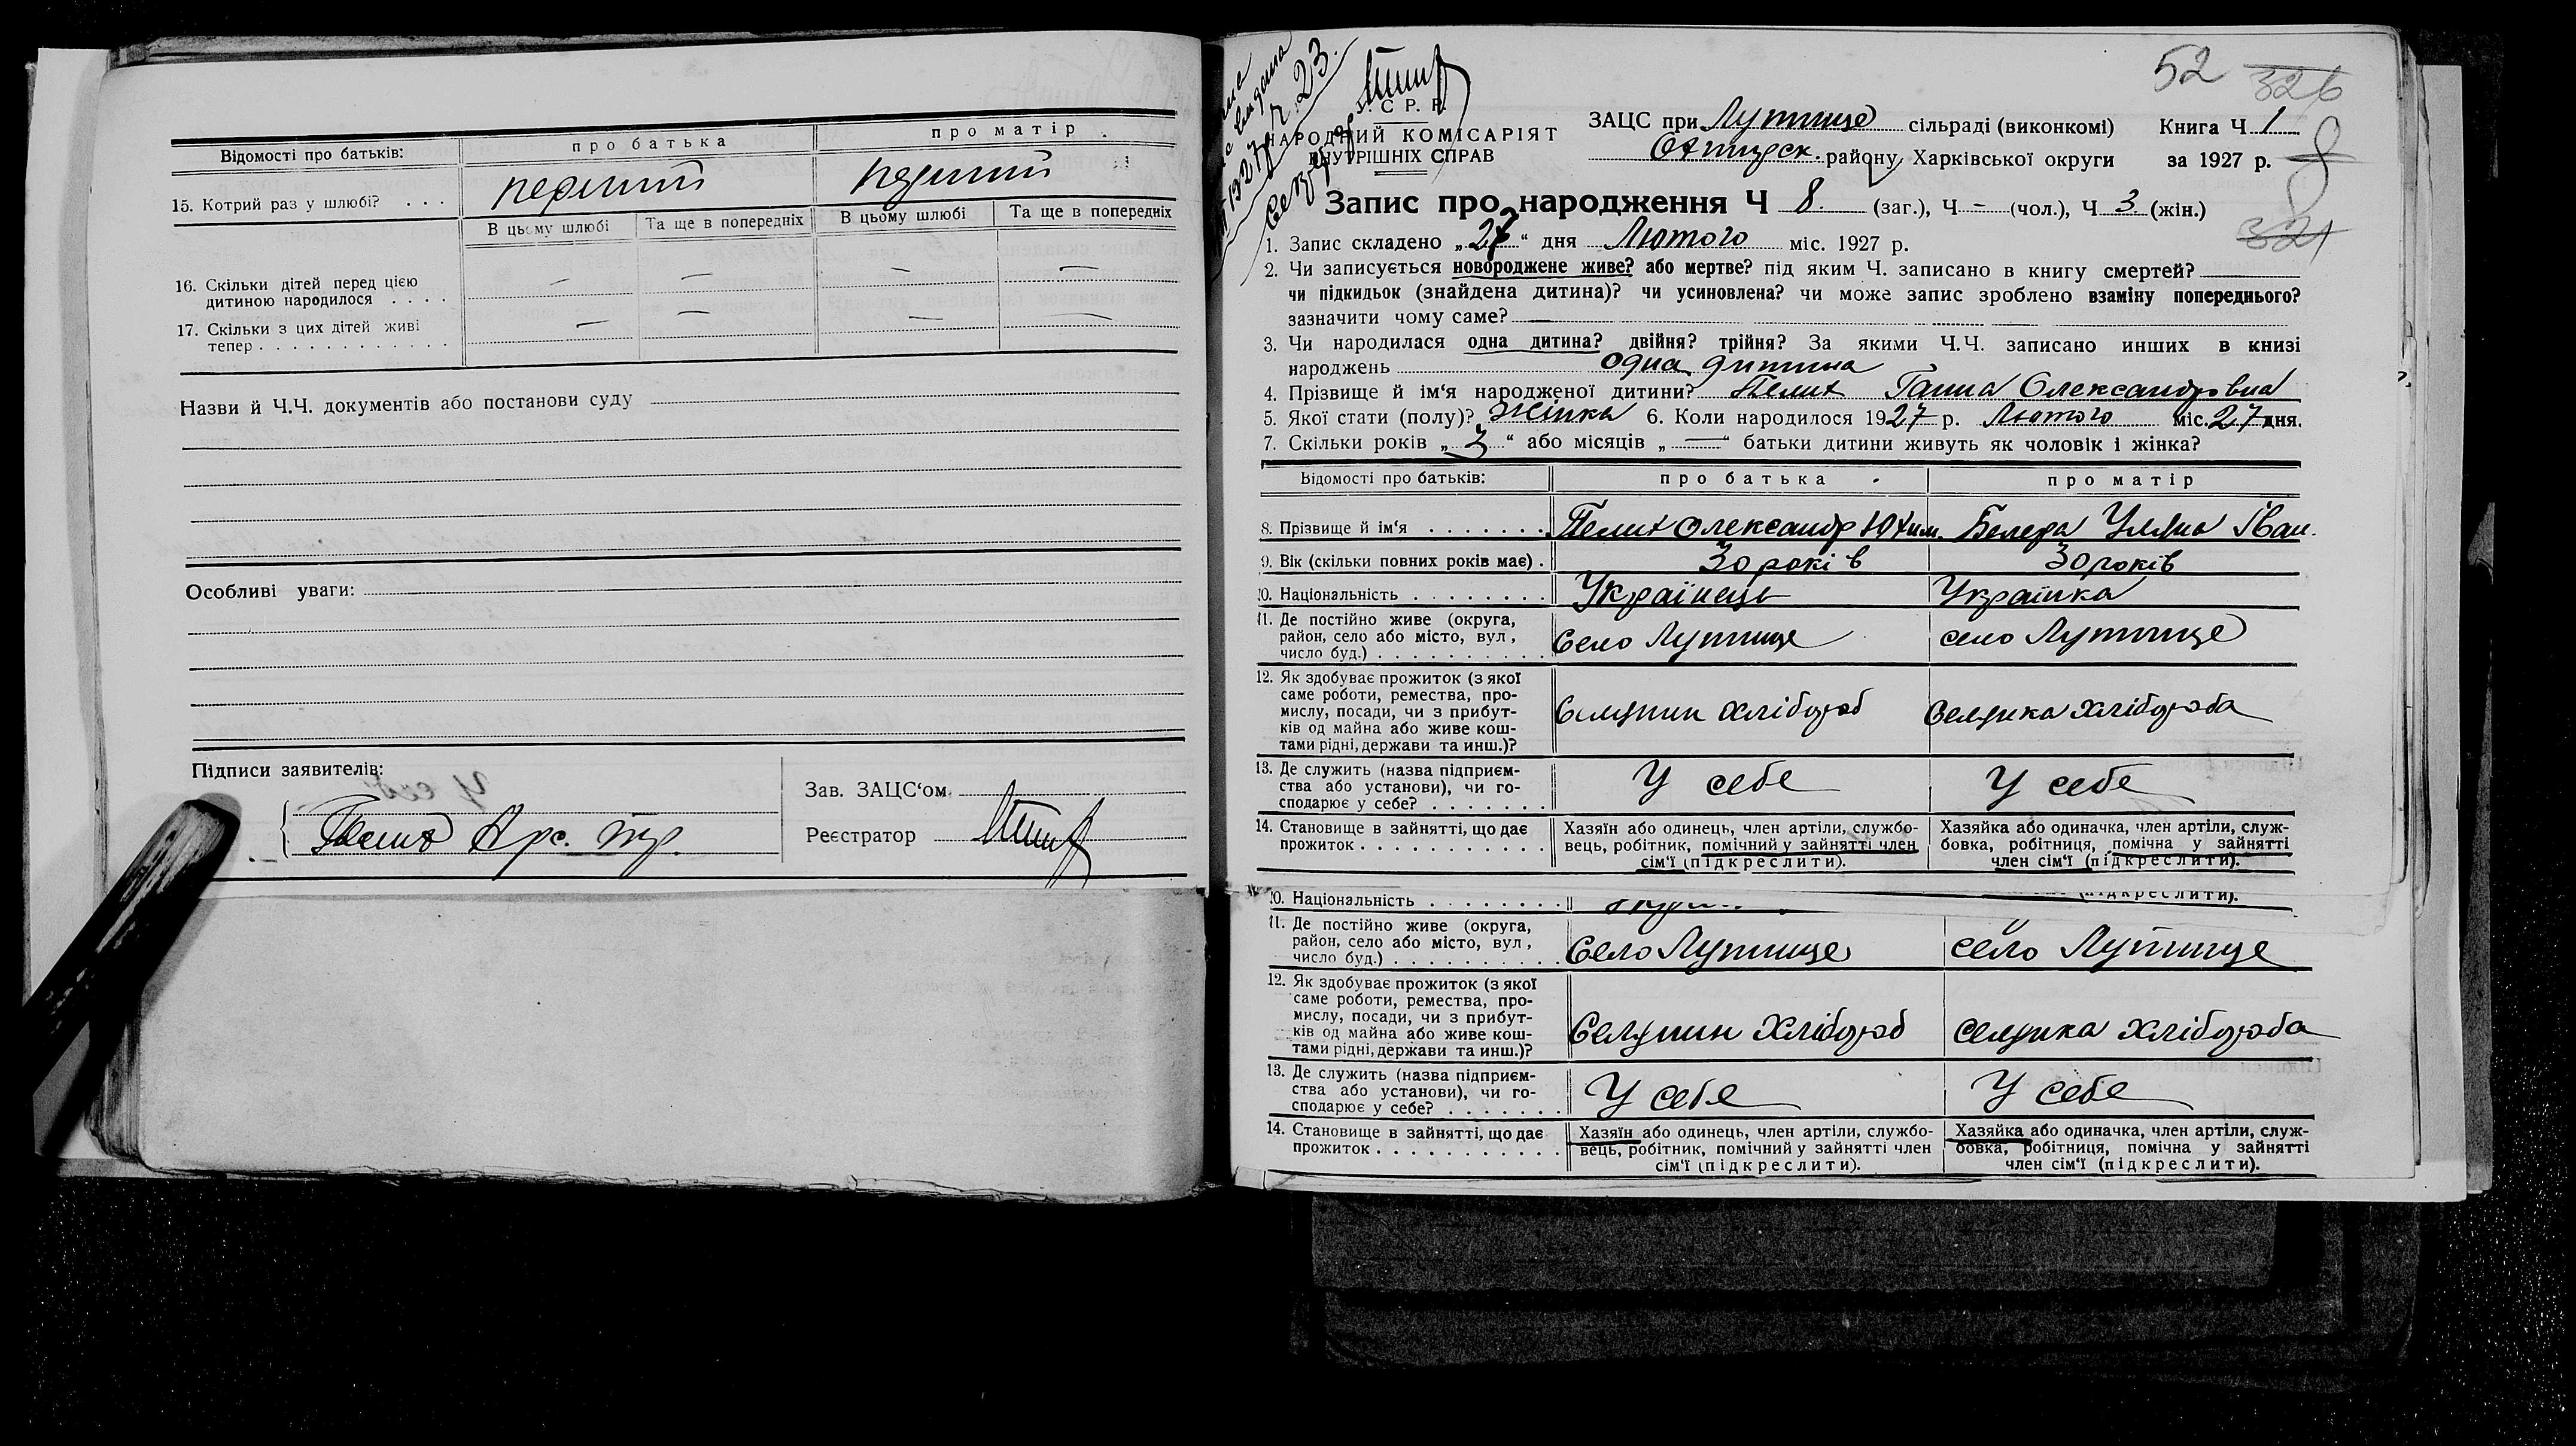 Відомості про батьків:
про батька
про матір
15. Котрий раз у шлюбі? . . .
первший
первший
В цьому шлюбі
Та ще в попередніх
В цьому шлюбі
Та ще в попередніх
16. Скільки дітей перед цією
дитиною народилося . . . .
— — — —
17. Скільки з цих дітей живі
тепер . . . . . . . . . . . .
— — — —
Назви й Ч.Ч. документів або постанови суду
Особливі уваги:
Підписи заявителів:
Арс. Тр.
Зав. ЗАЦС‘ом
Реєстратор
52 326
У. С. Р. Р.
НАРОДНИЙ КОМІСАРІЯТ
ВНУТРІШНІХ СПРАВ
1927 р. 23.
ЗАЦС при Лутище сільраді (виконкомі) Книга Ч 1
Охтирск. району, Харківської округи за 1927 р.
8
321
Запис про народження Ч 8. (заг.), Ч - (чол.), Ч 3 (жін.)
1. Запис складено „27“ дня Лютого міс. 1927 р.
2. Чи записується новороджене живе? або мертве? під яким Ч. записано в книгу смертей?
чи підкидьок (знайдена дитина)? чи усиновлена? чи може запис зроблено взаміну попереднього?
зазначити чому саме? —
3. Чи народилася одна дитина? двійня? трійня? За якими Ч.Ч. записано инших в книзі
народжень одна дитина
4. Прізвище й ім‘я народженої дитини? Пелих Ганна Олександровна
5. Якої стати (полу)? Жінка 6. Коли народилося 1927 р. Лютого міс. 27 дня.
7. Скільки років „3“ або місяців „—“ батьки дитини живуть як чоловік і жінка?
Відомості про батьків:
про батька
про матір
8. Прізвище й ім‘я . . . . . . .
Пелих Олександр Юхим.
Уляна Іван.
9. Вік (скільки повних років має) .
30 років
30 років
10. Національність . . . . . . . .
Українець
Українка
11. Де постійно живе (округа,
район, село або місто, вул,
число буд.) . . . . . . . . . .
Село Лутище
село Лутище
12. Як здобуває прожиток (з якої
саме роботи, ремества, про-
мислу, посади, чи з прибут-
ків од майна або живе кош-
тами рідні, держави та инш.)?
Селянин хлібороб
Селянка хлібороба
13. Де служить (назва підприєм-
ства або установи), чи го-
сподарює у себе? . . . . . . .
У себе
У себе
14. Становище в зайнятті, що дає
прожиток . . . . . . . . . . .
Хазяїн або одинець, член артіли, службо-
вець, робітник, помічний у зайнятті член
сім‘ї (підкреслити).
Хазяйка або одиначка, член артіли, служ-
бовка, робітниця, помічна у зайнятті
член сім‘ї (підкреслити).
(підкреслити).
10. Національність . . . . . . . .
11. Де постійно живе (округа,
район, село або місто, вул,
число буд.) . . . . . . . . . .
Село Лутище
село Лутище
12. Як здобуває прожиток (з якої
саме роботи, ремества, про-
мислу, посади, чи з прибут-
ків од майна або живе кош-
тами рідні, держави та инш.)?
Селянин хлібороб
селянка хлібороба
13. Де служить (назва підприєм-
ства або установи), чи го-
сподарює у себе? . . . . . . .
У себе
У себе
14. Становище в зайнятті, що дає
прожиток . . . . . . . . . . .
Хазяїн або одинець, член артіли, службо-
вець, робітник, помічний у зайнятті член
сім‘ї (підкреслити).
Хазяйка або одиначка, член артіли, служ-
бовка, робітниця, помічна у зайнятті
член сім‘ї (підкреслити).